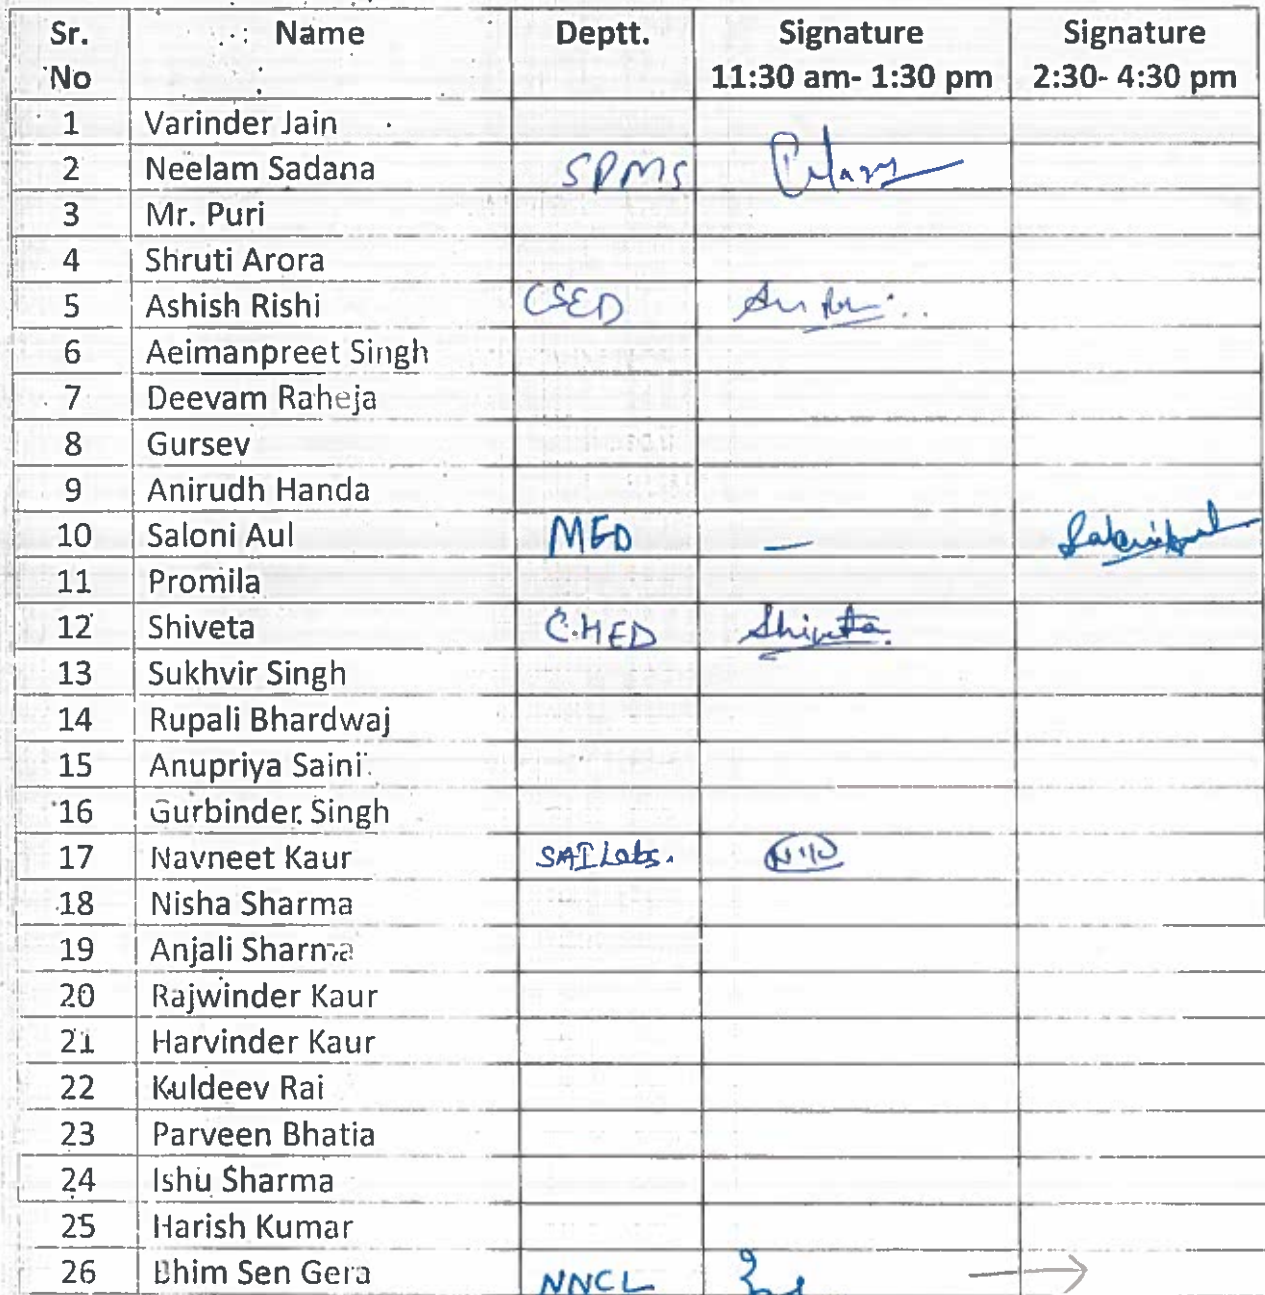 Sr. No Name Deptt. Signature 11:30 am- 1:30 pm Signature 2:30- 4:30 pm
1 Varinder Jain
2 Neelam Sadana SPMS
3 Mr. Puri
4 Shruti Arora
5 Ashish Rishi CSED
6 Aeimanpreet Singh
7 Deevam Raheja
8 Gursev
9 Anirudh Handa
10 Saloni Aul MED —
11 Promila
12 Shiveta C.HED Shiveta
13 Sukhvir Singh
14 Rupali Bhardwaj
15 Anupriya Saini
16 Gurbinder Singh
17 Navneet Kaur SAI Labs.
18 Nisha Sharma
19 Anjali Sharma
20 Rajwinder Kaur
21 Harvinder Kaur
22 Kuldeev Rai
23 Parveen Bhatia
24 Ishu Sharma
25 Harish Kumar
26 Bhim Sen Gera NNCL →